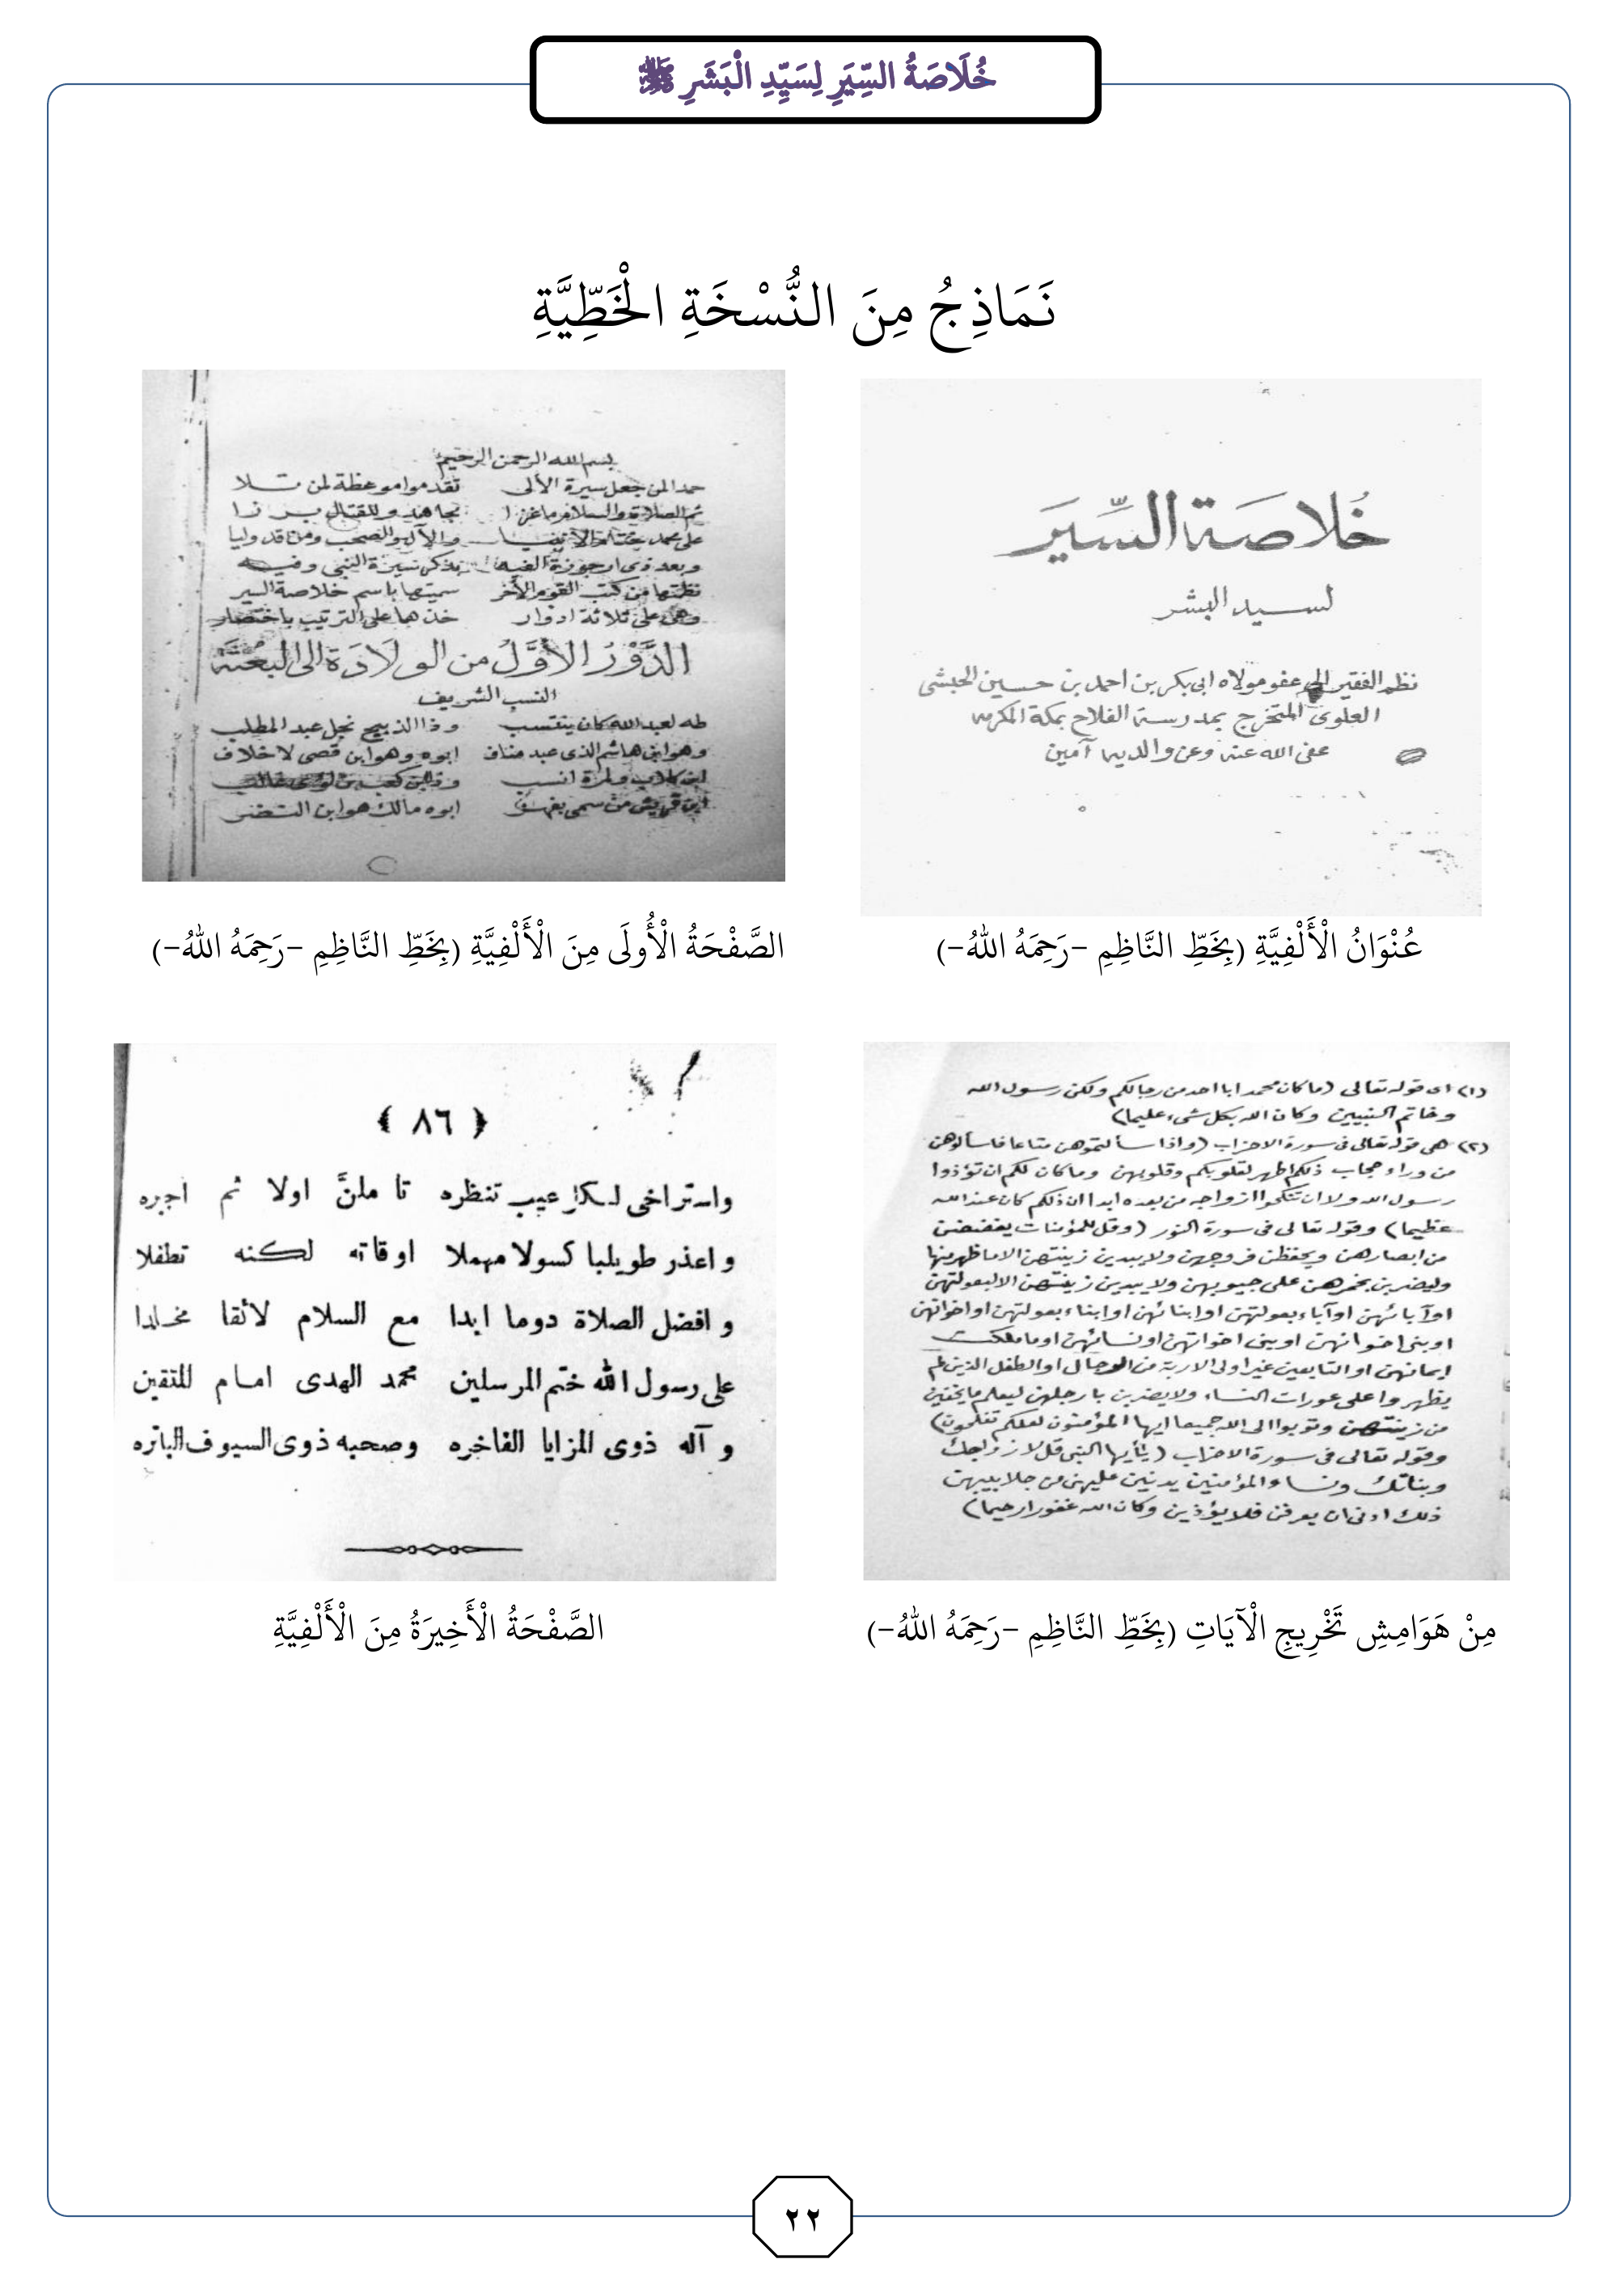 خُلَاصَةُ السِّيَرِ لِسَيِّدِ الْبَشَرِ ﷺ
نَمَاذِجُ مِنَ النُّسْخَةِ الْخَطِّيَّةِ
خُلاصَة السِّيَرَ
لسيد البشر
نظم الفقير الى عفو مولاه ابى بكر بن احمد بن حسين الحبشى
العلوى المتخرج بمدرسة الفلاح بمكة المكرمه
عفى الله عنه وعن والديه آمين
عُنْوَانُ الْأَلْفِيَّةِ (بِخَطِّ النَّاظِمِ -رَحِمَهُ اللهُ-)
بسم الله الرحمن الرحيم
حمدا لمن جعل سيرة الألى تقدموا موعظة لمن تلا
ثم الصلاة والسلام ما غزا مجاهد وللقتال برزا
على محمد ختام الانبيا والآل والصحب ومن قد وليا
وبعد ذى ارجوزة بذكر سيرة النبى وفيه
نظمتها من كتب القوم الأخر سميتها باسم خلاصة السير
وهى على ثلاثة ادوار خذها على الترتيب باختصار
الدَّوْرُ الأوَّلُ من الولادَة الى البعثَة
النسب الشريف
طه لعبدالله كان ينتسب وذا الذبيح نجل عبد المطلب
وهو ابن هاشم الذى عبد مناف ابوه وهو ابن قصى لاخلاف
ابن كلاب ولمرة انسب وذا ابن كعب بن لؤى غالب
ابن قريش من سمى بفهر ابوه مالك هو ابن النضر
الصَّفْحَةُ الْأُولَى مِنَ الْأَلْفِيَّةِ (بِخَطِّ النَّاظِمِ -رَحِمَهُ اللهُ-)
(١) اى قوله تعالى (ما كان محمد ابا احد من رجالكم ولكن رسول الله
وخاتم النبيين وكان الله بكل شىء عليما)
(٢) هى قوله تعالى فى سورة الاحزاب (واذا سألتموهن متاعا فاسألوهن
من وراء حجاب ذلكم اطهر لقلوبكم وقلوبهن وما كان لكم ان تؤذوا
رسول الله ولا ان تنكحوا ازواجه من بعده ابدا ان ذلكم كان عند الله
عظيما) وقوله تعالى فى سورة النور (وقل للمؤمنات يغضضن
من ابصارهن ويحفظن فروجهن ولا يبدين زينتهن الا ما ظهر منها
وليضربن بخمرهن على جيوبهن ولا يبدين زينتهن الا لبعولتهن
او آبائهن او آباء بعولتهن او ابنائهن او ابناء بعولتهن او اخوانهن
او بنى اخوانهن او بنى اخواتهن او نسائهن او ما ملكت
ايمانهن او التابعين غير اولى الاربة من الرجال او الطفل الذين لم
يظهروا على عورات النساء ولا يضربن بارجلهن ليعلم ما يخفين
من زينتهن وتوبوا الى الله جميعا ايها المؤمنون لعلكم تفلحون)
وقوله تعالى فى سورة الاحزاب (يأيها النبى قل لازواجك
وبناتك ونساء المؤمنين يدنين عليهن من جلابيبهن
ذلك ادنى ان يعرفن فلا يؤذين وكان الله غفورا رحيما)
مِنْ هَوَامِشِ تَخْرِيجِ الْآيَاتِ (بِخَطِّ النَّاظِمِ -رَحِمَهُ اللهُ-)
﴿ ٨٦ ﴾
واستراخى لكل عيب تنظره تا ملنَّ اولا ثم اجبره
و اعذر طويلبا كسولا مهملا اوقاته لكنه تطفلا
و افضل الصلاة دوما ابدا مع السلام لائقا مخلدا
على رسول الله ختم المرسلين محمد الهدى امام للمتقين
و آله ذوى المزايا الفاخره وصحبه ذوى السيوف الباتره
الصَّفْحَةُ الْأَخِيرَةُ مِنَ الْأَلْفِيَّةِ
٢٢